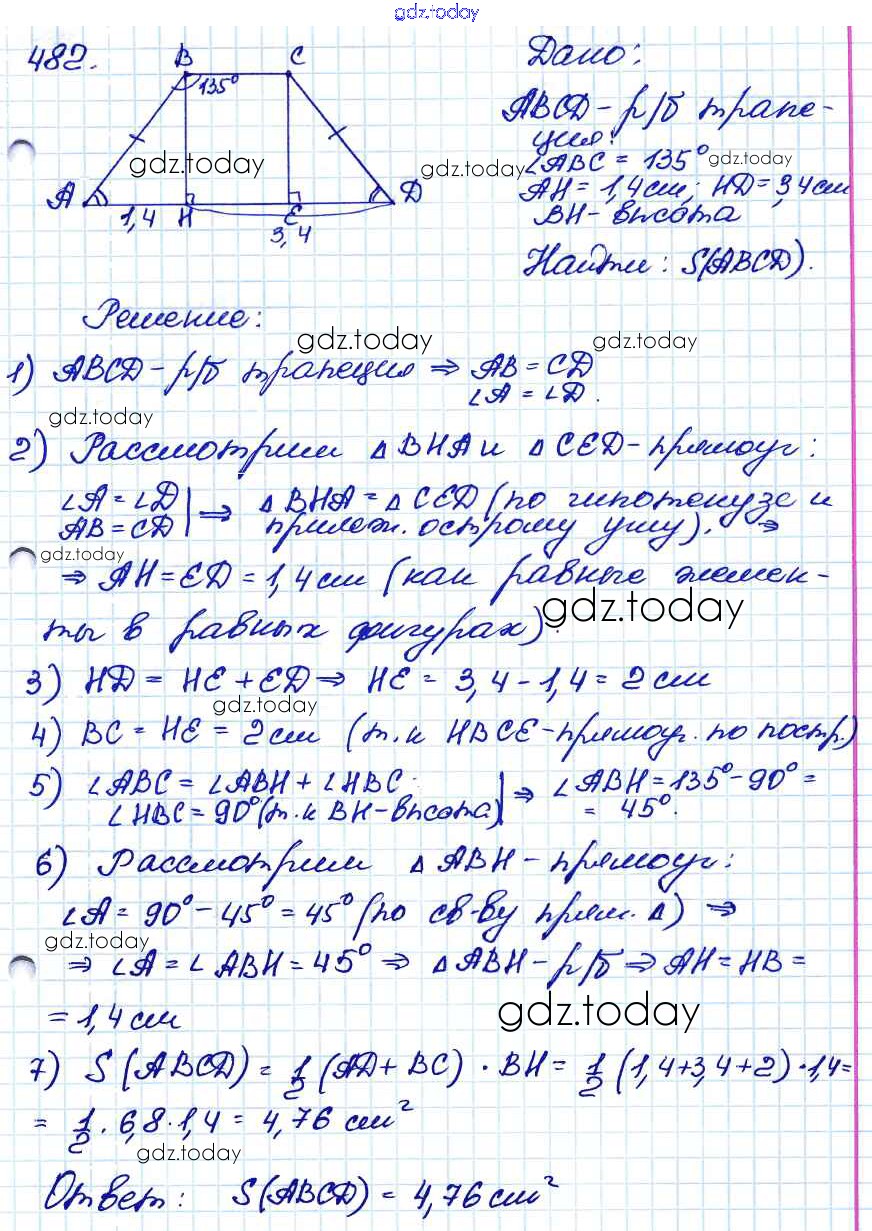 gdz.today
482.
B C
135°
gdz.today
A 1,4 H E D
3,4
Дано:
ABCD - р/б трапе-
ция:
∠ABC = 135° gdz.today
gdz.today
AH = 1,4 см; HD = 3,4 см
BH - высота
Найти: S(ABCD).
Решение:
gdz.today gdz.today
1) ABCD - р/б трапеция ⇒ AB = CD
∠A = ∠D.
gdz.today
2) Рассмотрим △BHA и △CED - прямоуг:
∠A = ∠D
AB = CD | ⇒ △BHA = △CED (по гипотенузе и
прилеж. острому углу). ⇒
gdz.today
⇒ AH = ED = 1,4 см (как равные элемен-
gdz.today
ты в равных фигурах).
3) HD = HE + ED ⇒ HE = 3,4 - 1,4 = 2 см
gdz.today
4) BC = HE = 2 см (т.к HBCE - прямоуг. по постр.)
5) ∠ABC = ∠ABH + ∠HBC
∠HBC = 90° (т.к BH - высота) | ⇒ ∠ABH = 135° - 90° =
= 45°.
6) Рассмотрим △ABH - прямоуг:
∠A = 90° - 45° = 45° (по св-ву прям. △) ⇒
gdz.today
⇒ ∠A = ∠ABH = 45° ⇒ △ABH - р/б ⇒ AH = HB =
= 1,4 см
gdz.today
7) S(ABCD) = 1/2 (AD + BC) · BH = 1/2 (1,4 + 3,4 + 2) · 1,4 =
= 1/2 · 6,8 · 1,4 = 4,76 см²
gdz.today
Ответ: S(ABCD) = 4,76 см²